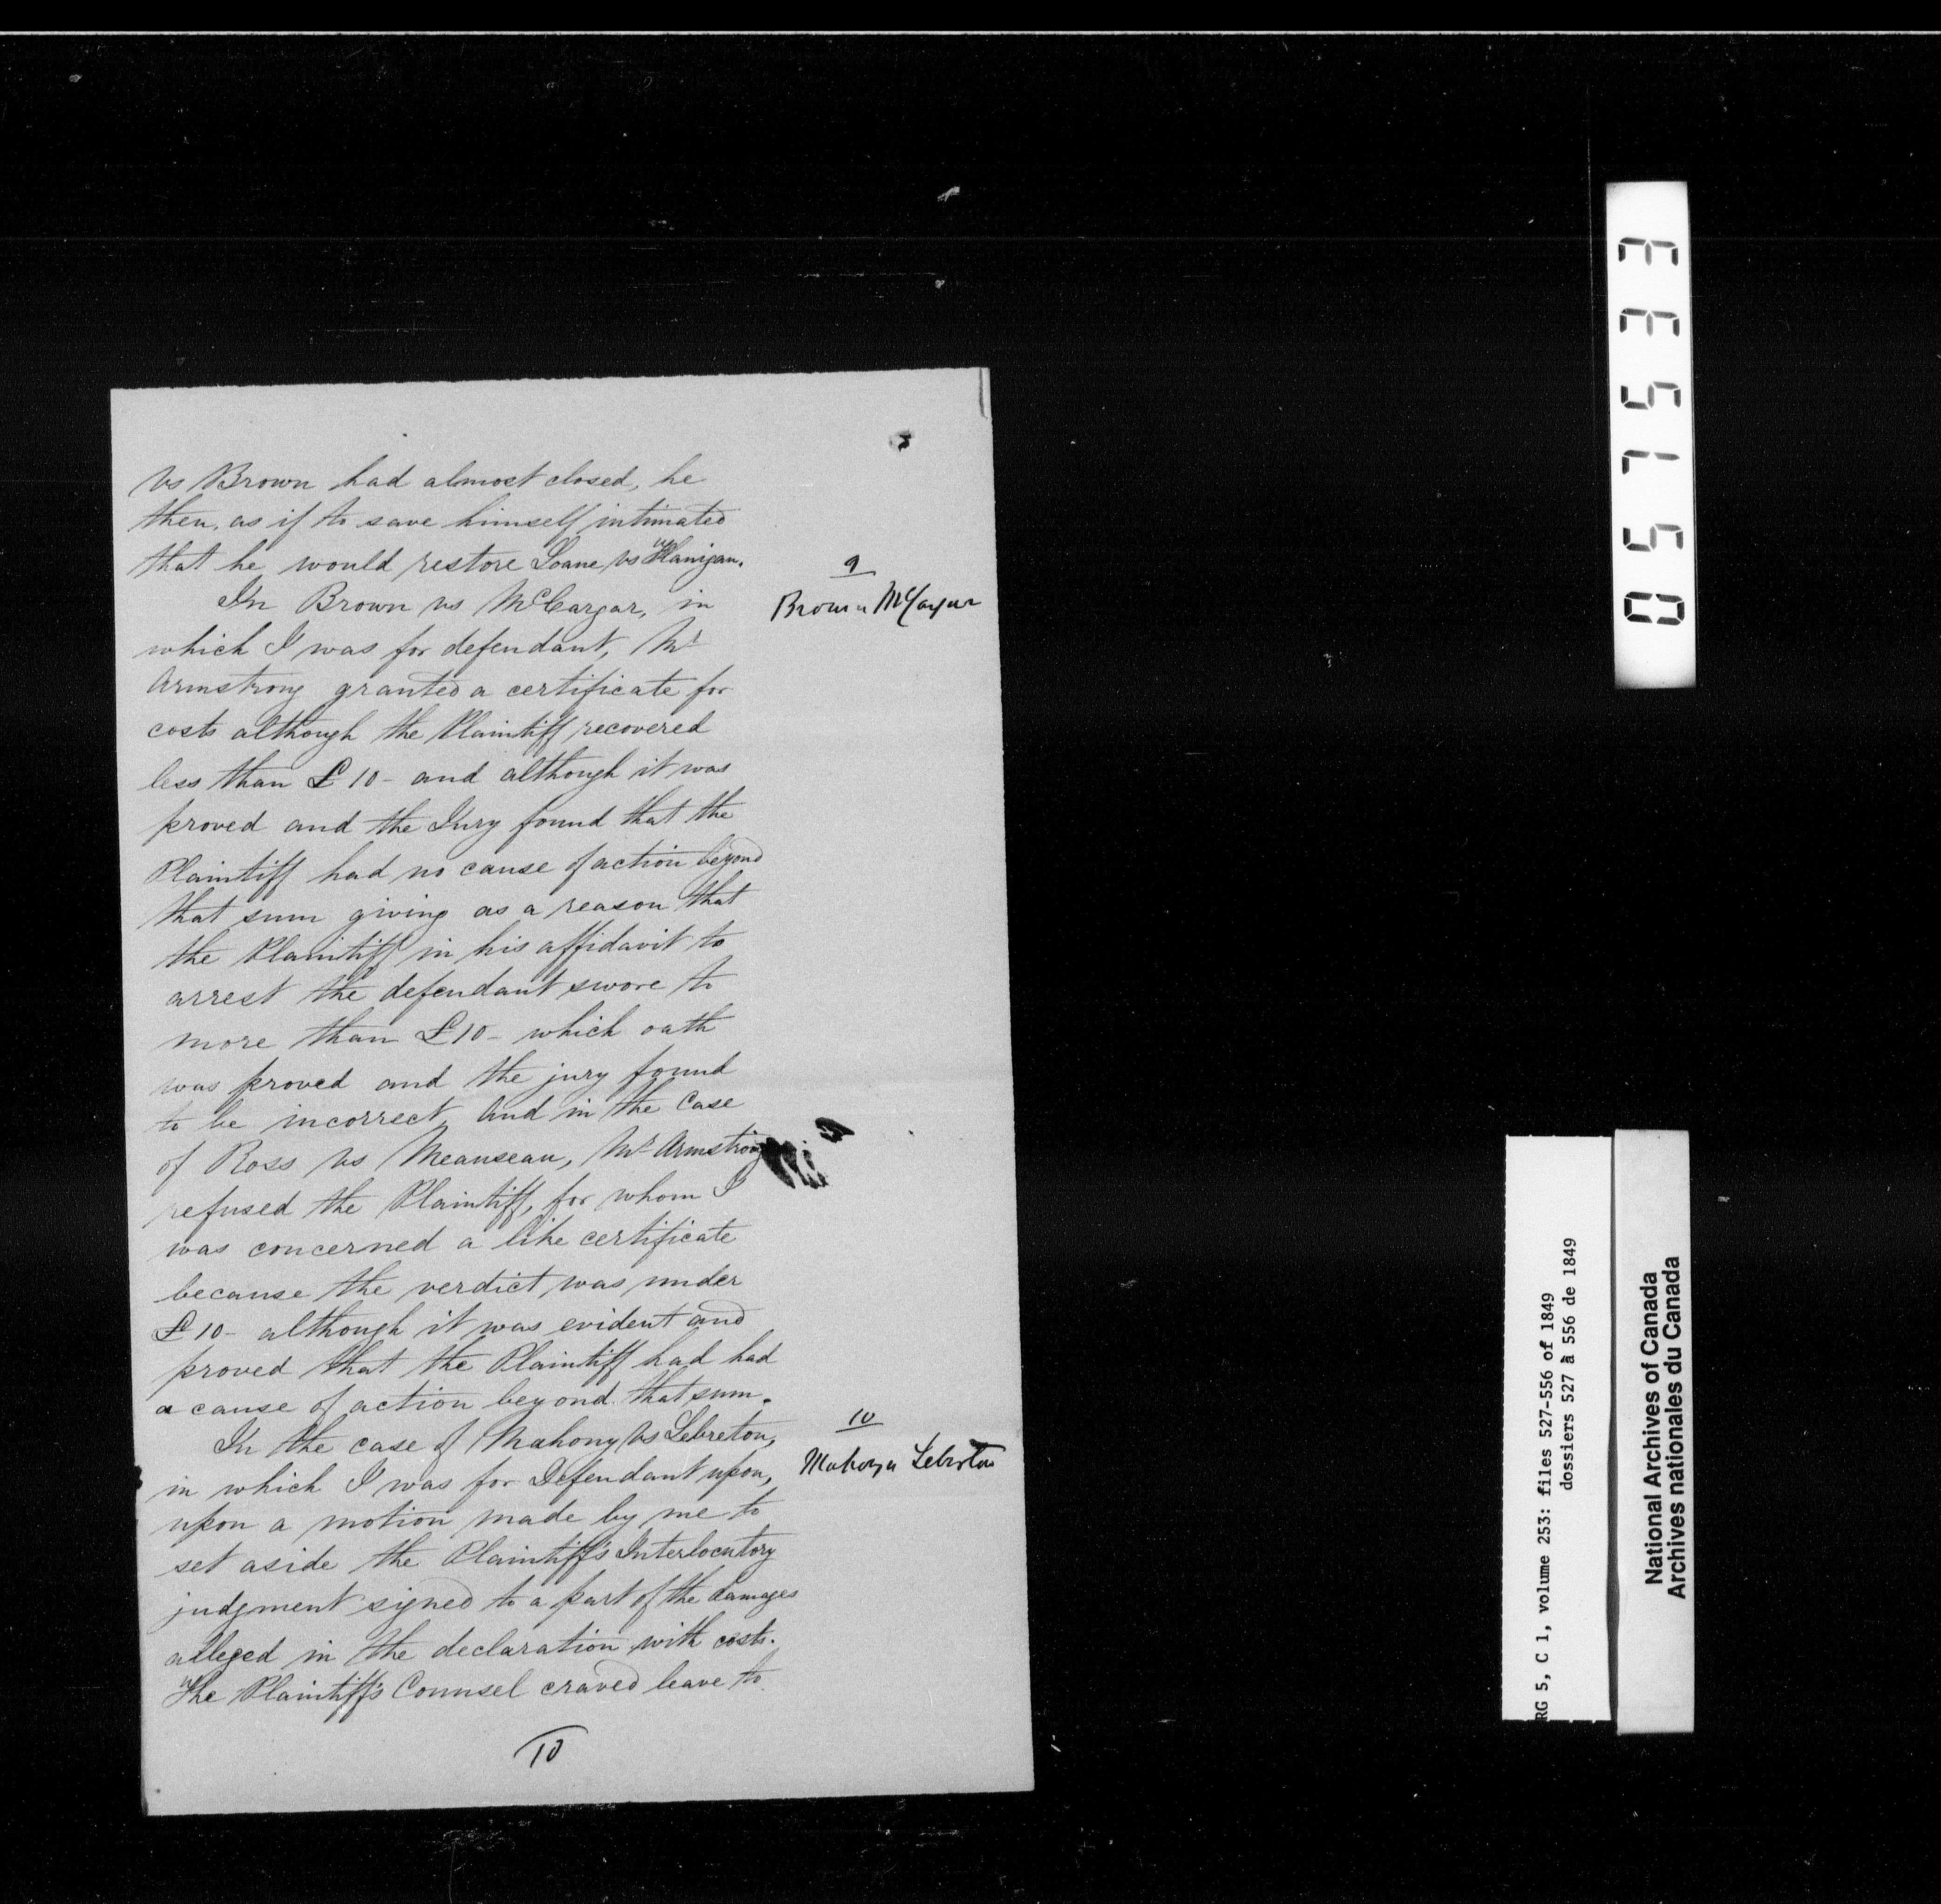 vs Brown had almost closed, he
then, as if to save himself intimated
that he would restore Loane vs Flanigan.
In Brown vs McCargar, in
which I was for defendant, Mr
Armstrong granted a certificate for
costs although the Plaintiff recovered
less than £10 - and although it was
proved and the Jury found that the
Plaintiff had no cause of action beyond
that sum giving as a reason that
the Plaintiff in his affidavit to
arrest the defendant swore to
more than £10 - which oath
was proved and the jury found
to be incorrect, And in the Case
of Ross vs Meauseau, Mr Armstrong
refused the Plaintiff, for whom I
was concerned a like certificate
because the verdict was under
£10 - although it was evident and
proved that the Plaintiff had had
a cause of action beyond that sum.
In the case of Mahony vs Lebreton,
in which I was for Defendant upon,
upon a motion made by me to
set aside the Plaintiff's Interlocutory
judgment signed to a part of the damages
alleged in the declaration with costs.
The Plaintiff's Counsel craved leave to
10
9
Brown McCargar
10
Mahony Lebreton
051533
RG 5, C 1, volume 253: files 527-556 of 1849
dossiers 527 à 556 de 1849
National Archives of Canada
Archives nationales du Canada